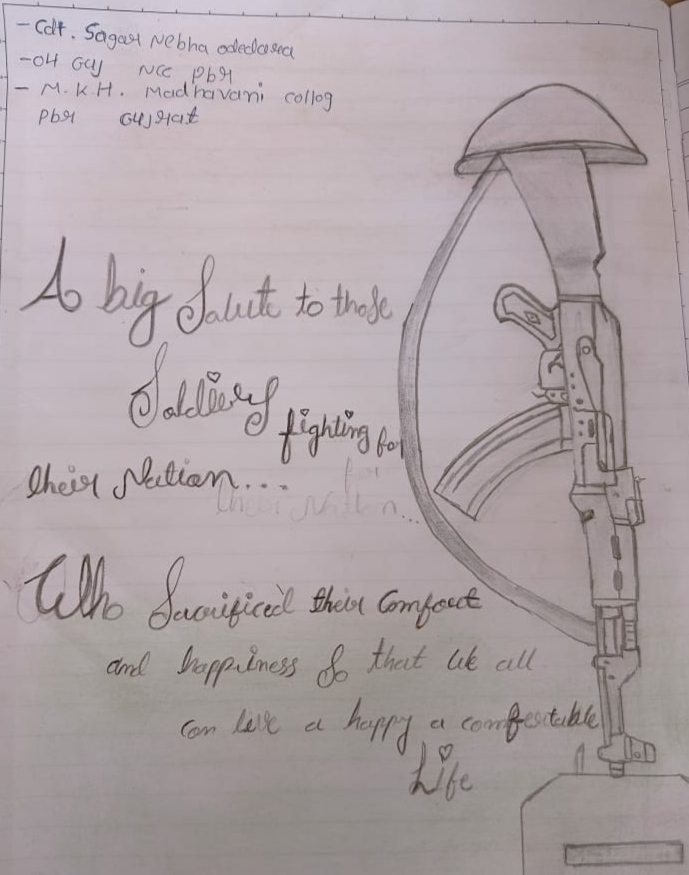 - Cdt. Sagar Nebha odedara
- 04 Guj NCC Pbr
- M.K.H. Madhavani collog
Pbr Gujrat
A big Salute to those
Soldiers fighting for
their Nation...
for
their Nation...
Who Sacrificed their Comfort
and happiness So that We all
can live a happy a comfortable
Life